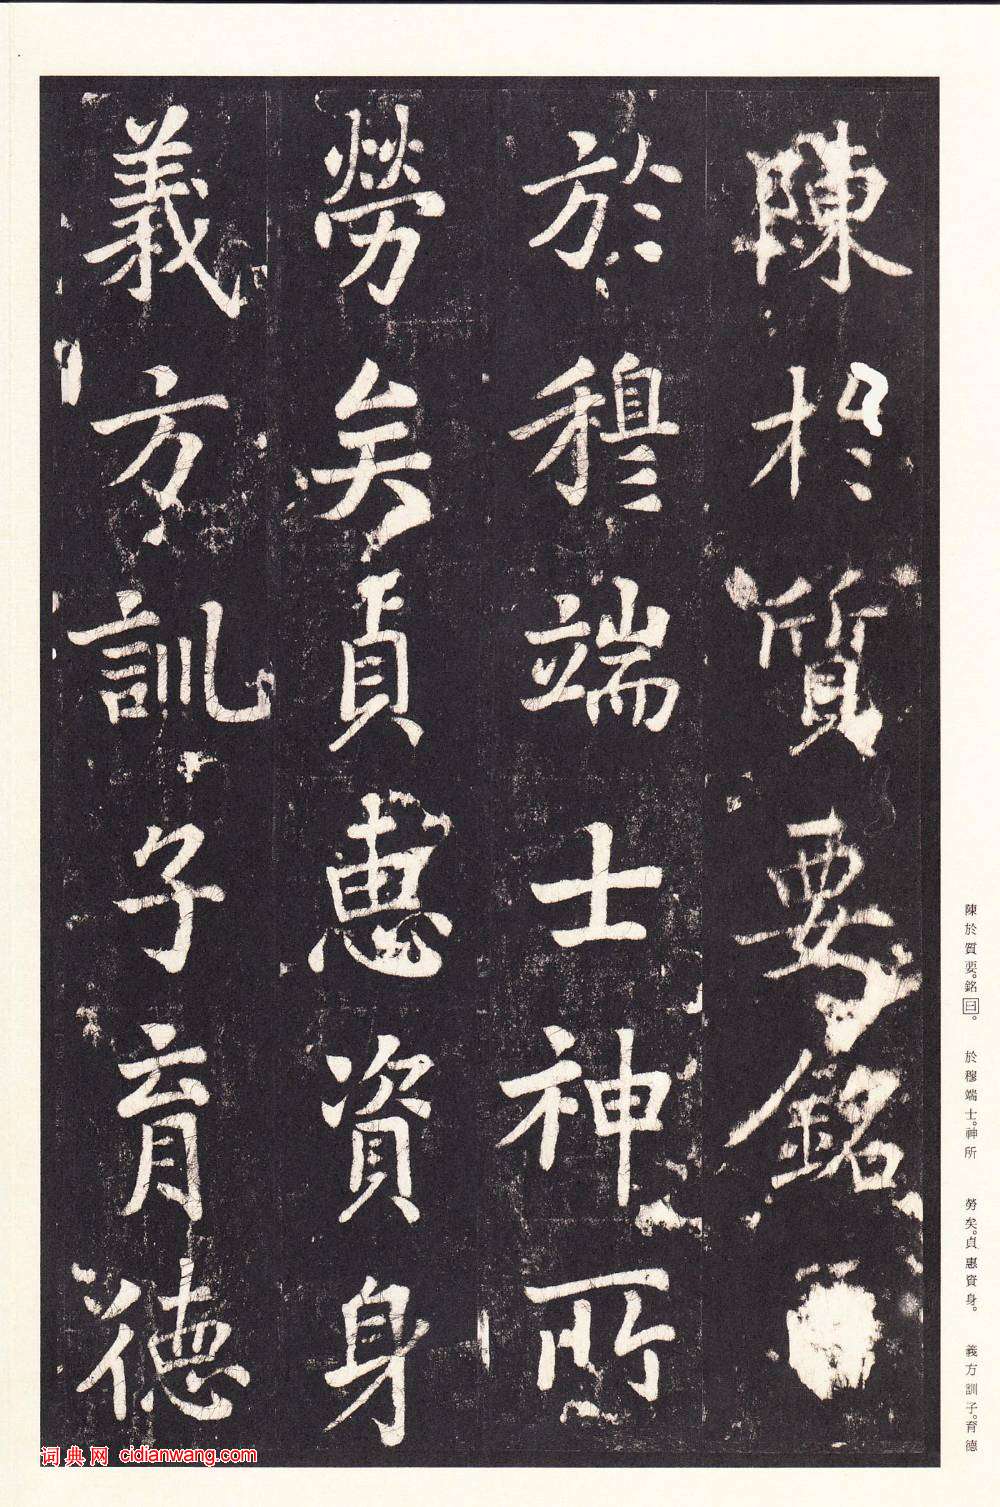 陳於質要銘
於穆端士神所
勞矣貞惠資身
義方訓子育德
陳於質要。銘曰。 於穆端士。神所 勞矣。貞惠資身。 義方訓子。育德
词典网 cidianwang.com